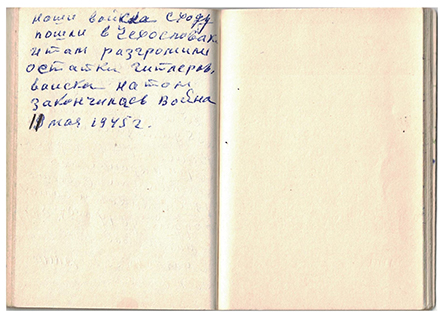 наши войска сходу
пошли в Чехословак
и там разгромили
остатки гитлеров,
войска на том
закончилась война
11 мая 1945 г.